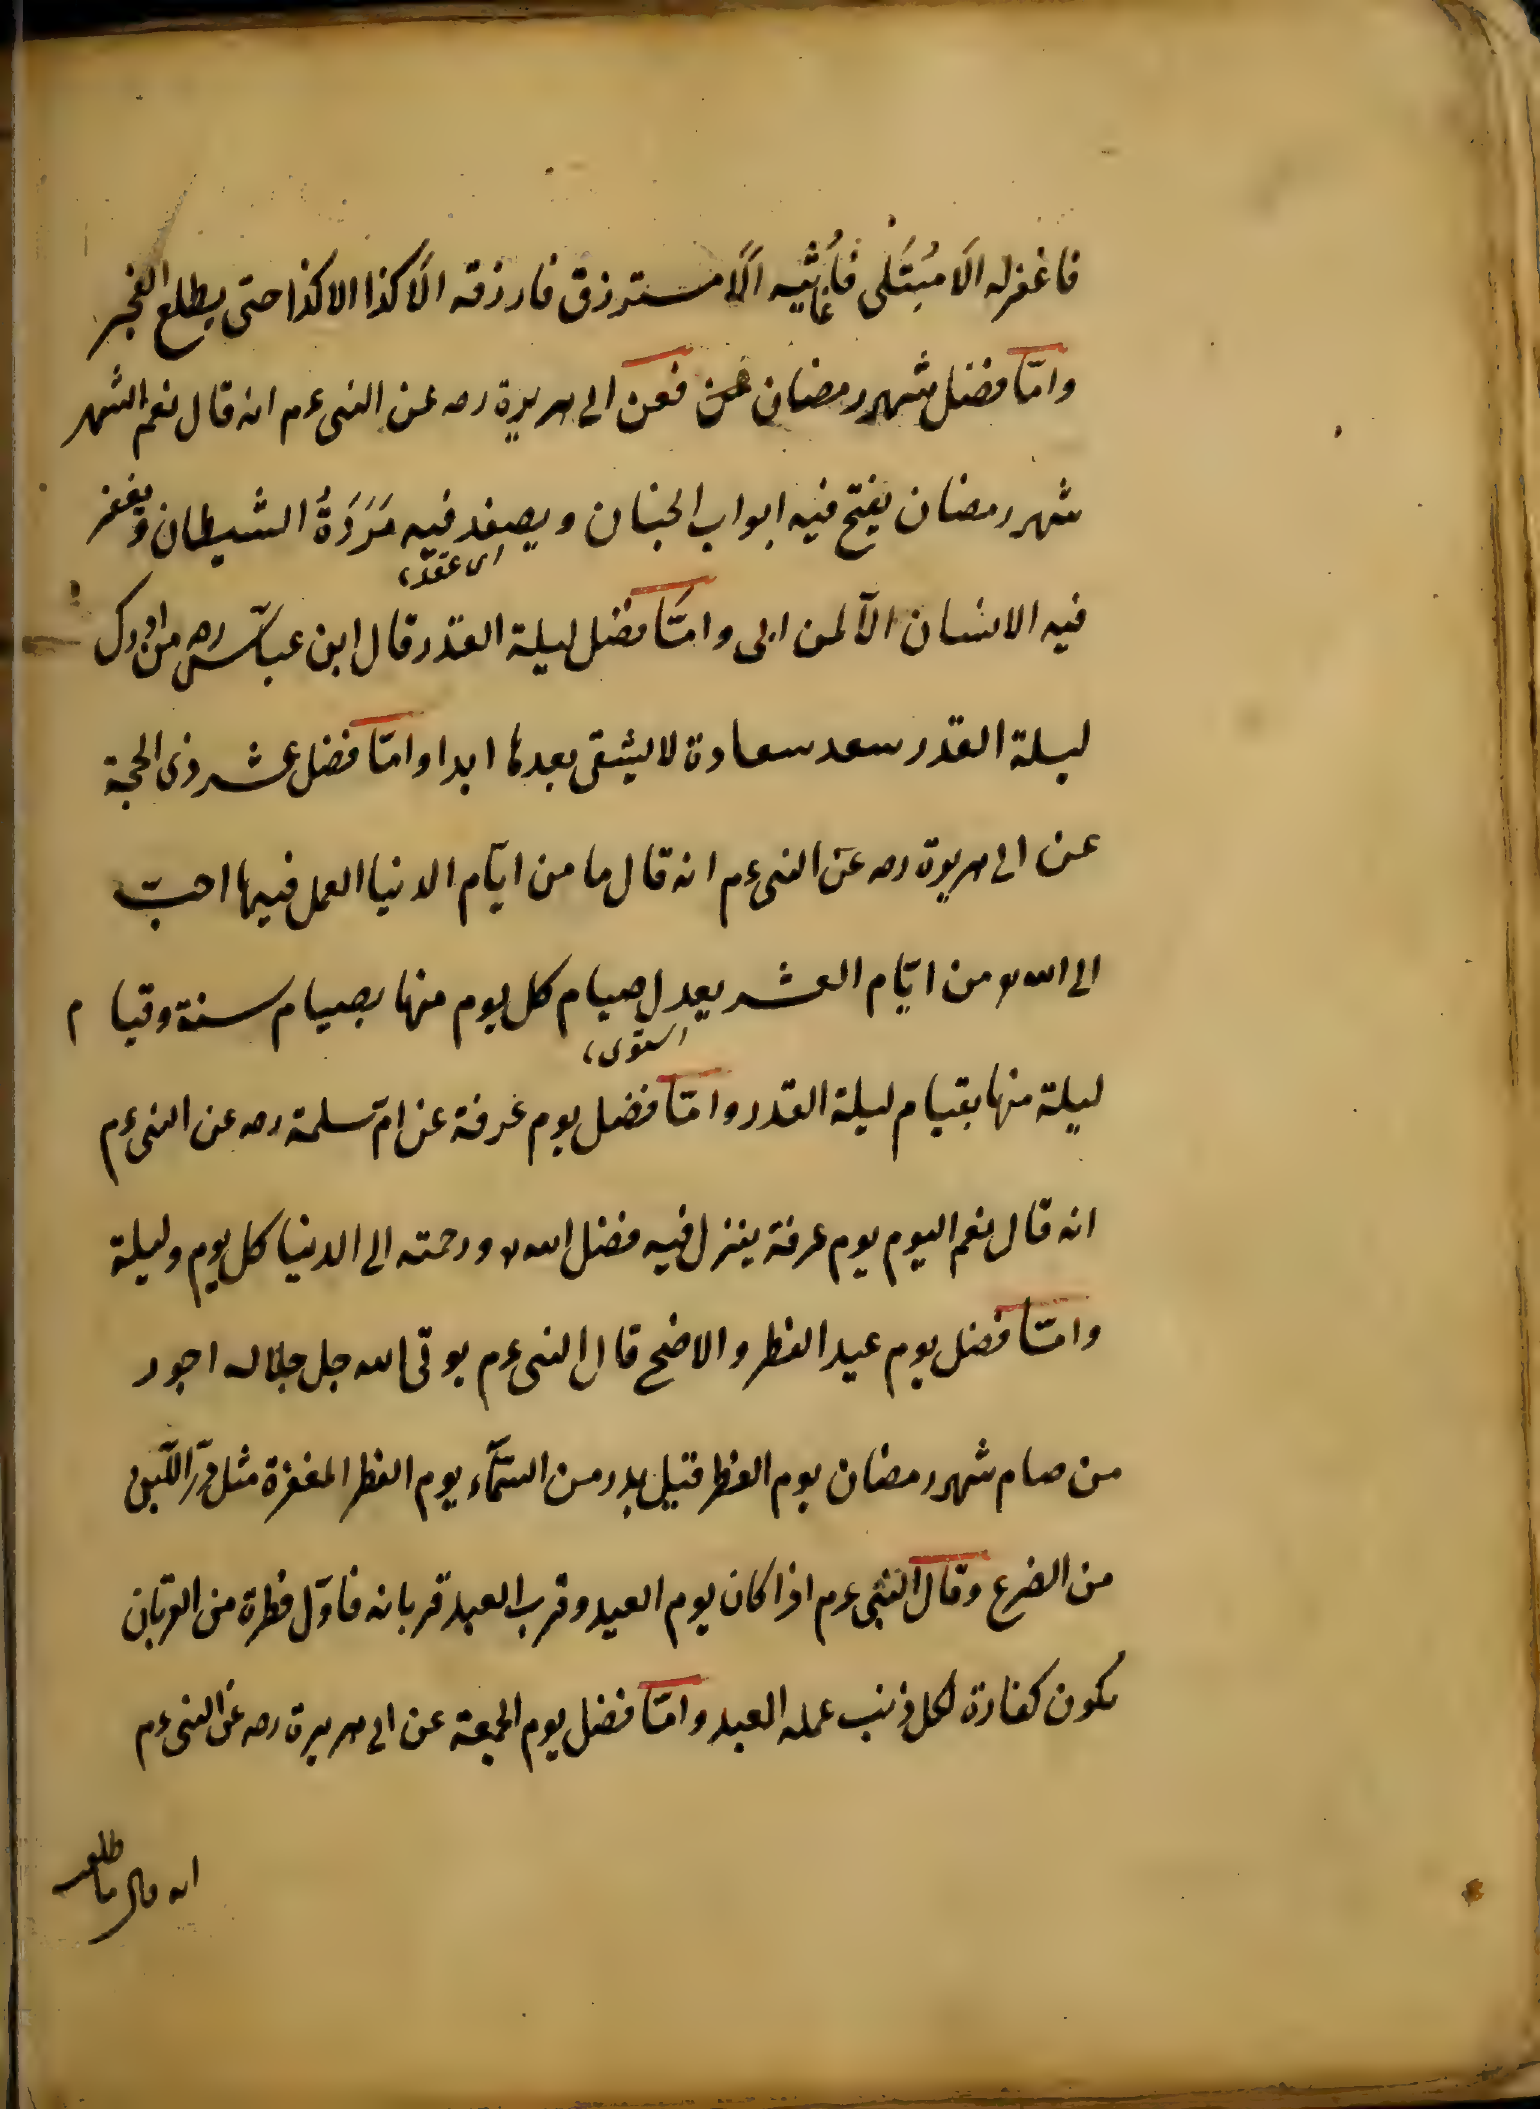 فاغفرله الا مبتلى فأعافيه الا مسترزق فارزقه الا كذا الا كذا حتى يطلع الفجر
وامّا فضل شهر رمضان عن فعن ابى هريرة رضه عن النبى ءم انه قال نعم الشهر
شهر رمضان يفتح فيه ابواب الجنان ويصفد فيه مَرَدَةُ الشيطان ويغفر
اى عقد
فيه الانسان الّا لمن ابى وامّا فضل ليلة القدر قال ابن عباس رضه من ادرك
ليلة القدر سعد سعادة لا يشقى بعدها ابدا وامّا فضل عشر ذى الحجة
عن ابى هريرة رضه عن النبى ءم انه قال ما من ايّام الدنيا العمل فيها احبّ
الى الله من ايّام العشر يعدل صيام كل يوم منها بصيام سنة وقيام
استوى
ليلة منها بقيام ليلة القدر وامّا فضل يوم عرفة عن امّ سلمة رضه عن النبى ءم
انه قال نعم اليوم يوم عرفة ينزل فيه فضل الله ورحمته الى الدنيا كل يوم وليلة
وامّا فضل يوم عيد الفطر والاضحى قال النبى ءم يوتى الله جل جلاله اجور
من صام شهر رمضان يوم الفطر قيل بدر من السّمآء يوم الفطر المغفرة مثل درّ اللّبن
من الضرع وقال النبى ءم اذا كان يوم العيد وقرب العبد قربانه فاوّل قطرة من القربان
يكون كفارة لكل ذنب عمله العبد وامّا فضل يوم الجمعة عن ابى هريرة رضه عن النبى ءم
انه قال ما طلعت